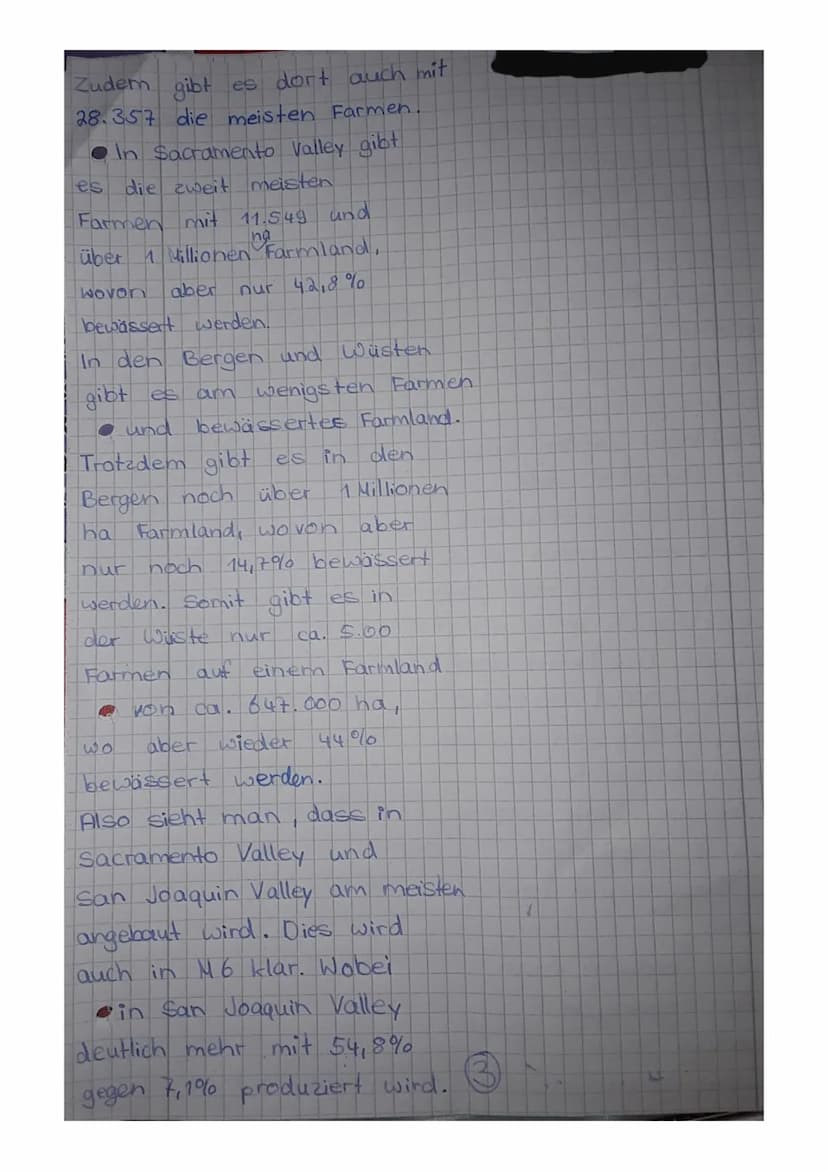 Zudem gibt es dort auch mit
28.357 die meisten Farmen.
In Sacramento Valley gibt
es die zweit meisten
Farmen mit 11.549 und
über 1 Millionen ha Farmland,
wovon aber nur 42,8%
bewässert werden.
In den Bergen und Wüsten
gibt es am wenigsten Farmen
und bewässertes Farmland.
Trotzdem gibt es in den
Bergen noch über 1 Millionen
ha Farmland, wovon aber
nur noch 14,7% bewässert
werden. Somit gibt es in
der Wüste nur ca. 5.00
Farmen auf einem Farmland
von ca. 647.000 ha,
wo aber wieder 44%
bewässert werden.
Also sieht man, dass in
Sacramento Valley und
San Joaquin Valley am meisten
angebaut wird. Dies wird
auch in M6 klar. Wobei
in San Joaquin Valley
deutlich mehr mit 54,8%
gegen 7,1% produziert wird. 3